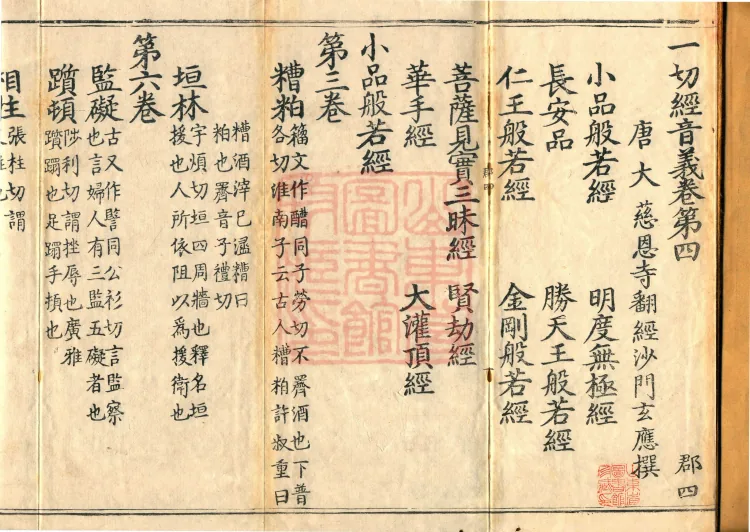 一切經音義卷第四 郡四
唐大慈恩寺翻經沙門玄應撰
小品般若經 明度無極經
長安品 勝天王般若經
仁王般若經 金剛般若經
菩薩見實三昧經 賢劫經
華手經 大灌頂經
小品般若經
第三卷
糟粕
籕文作醩同子勞切不酒也下普
各切淮南子云古人糟粕許叔重曰
糟酒滓巳漉糟曰
粕也音子禮切
垣林
宇煩切垣四周牆也釋名垣
援也人所依阻以爲援衛也
第六卷
監礙
古又作譼同公衫切言監察
也言婦人有三監五礙者也
躓頓
陟利切謂挫辱也廣雅
躓蹋也足蹋手頓也
張柱切謂